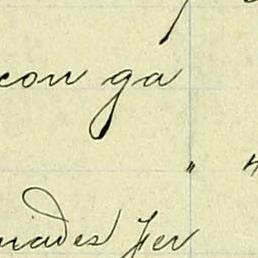 con ga
" "
niades Jer